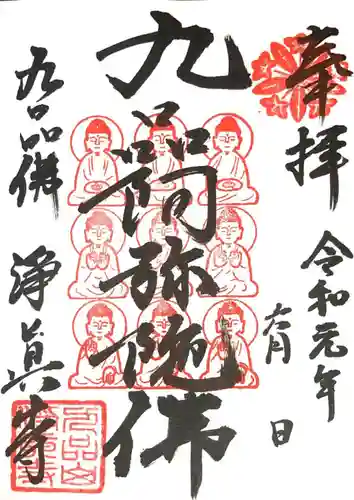 奉拝
令和元年
六月 日
九品阿弥陀佛
九品佛 淨眞寺